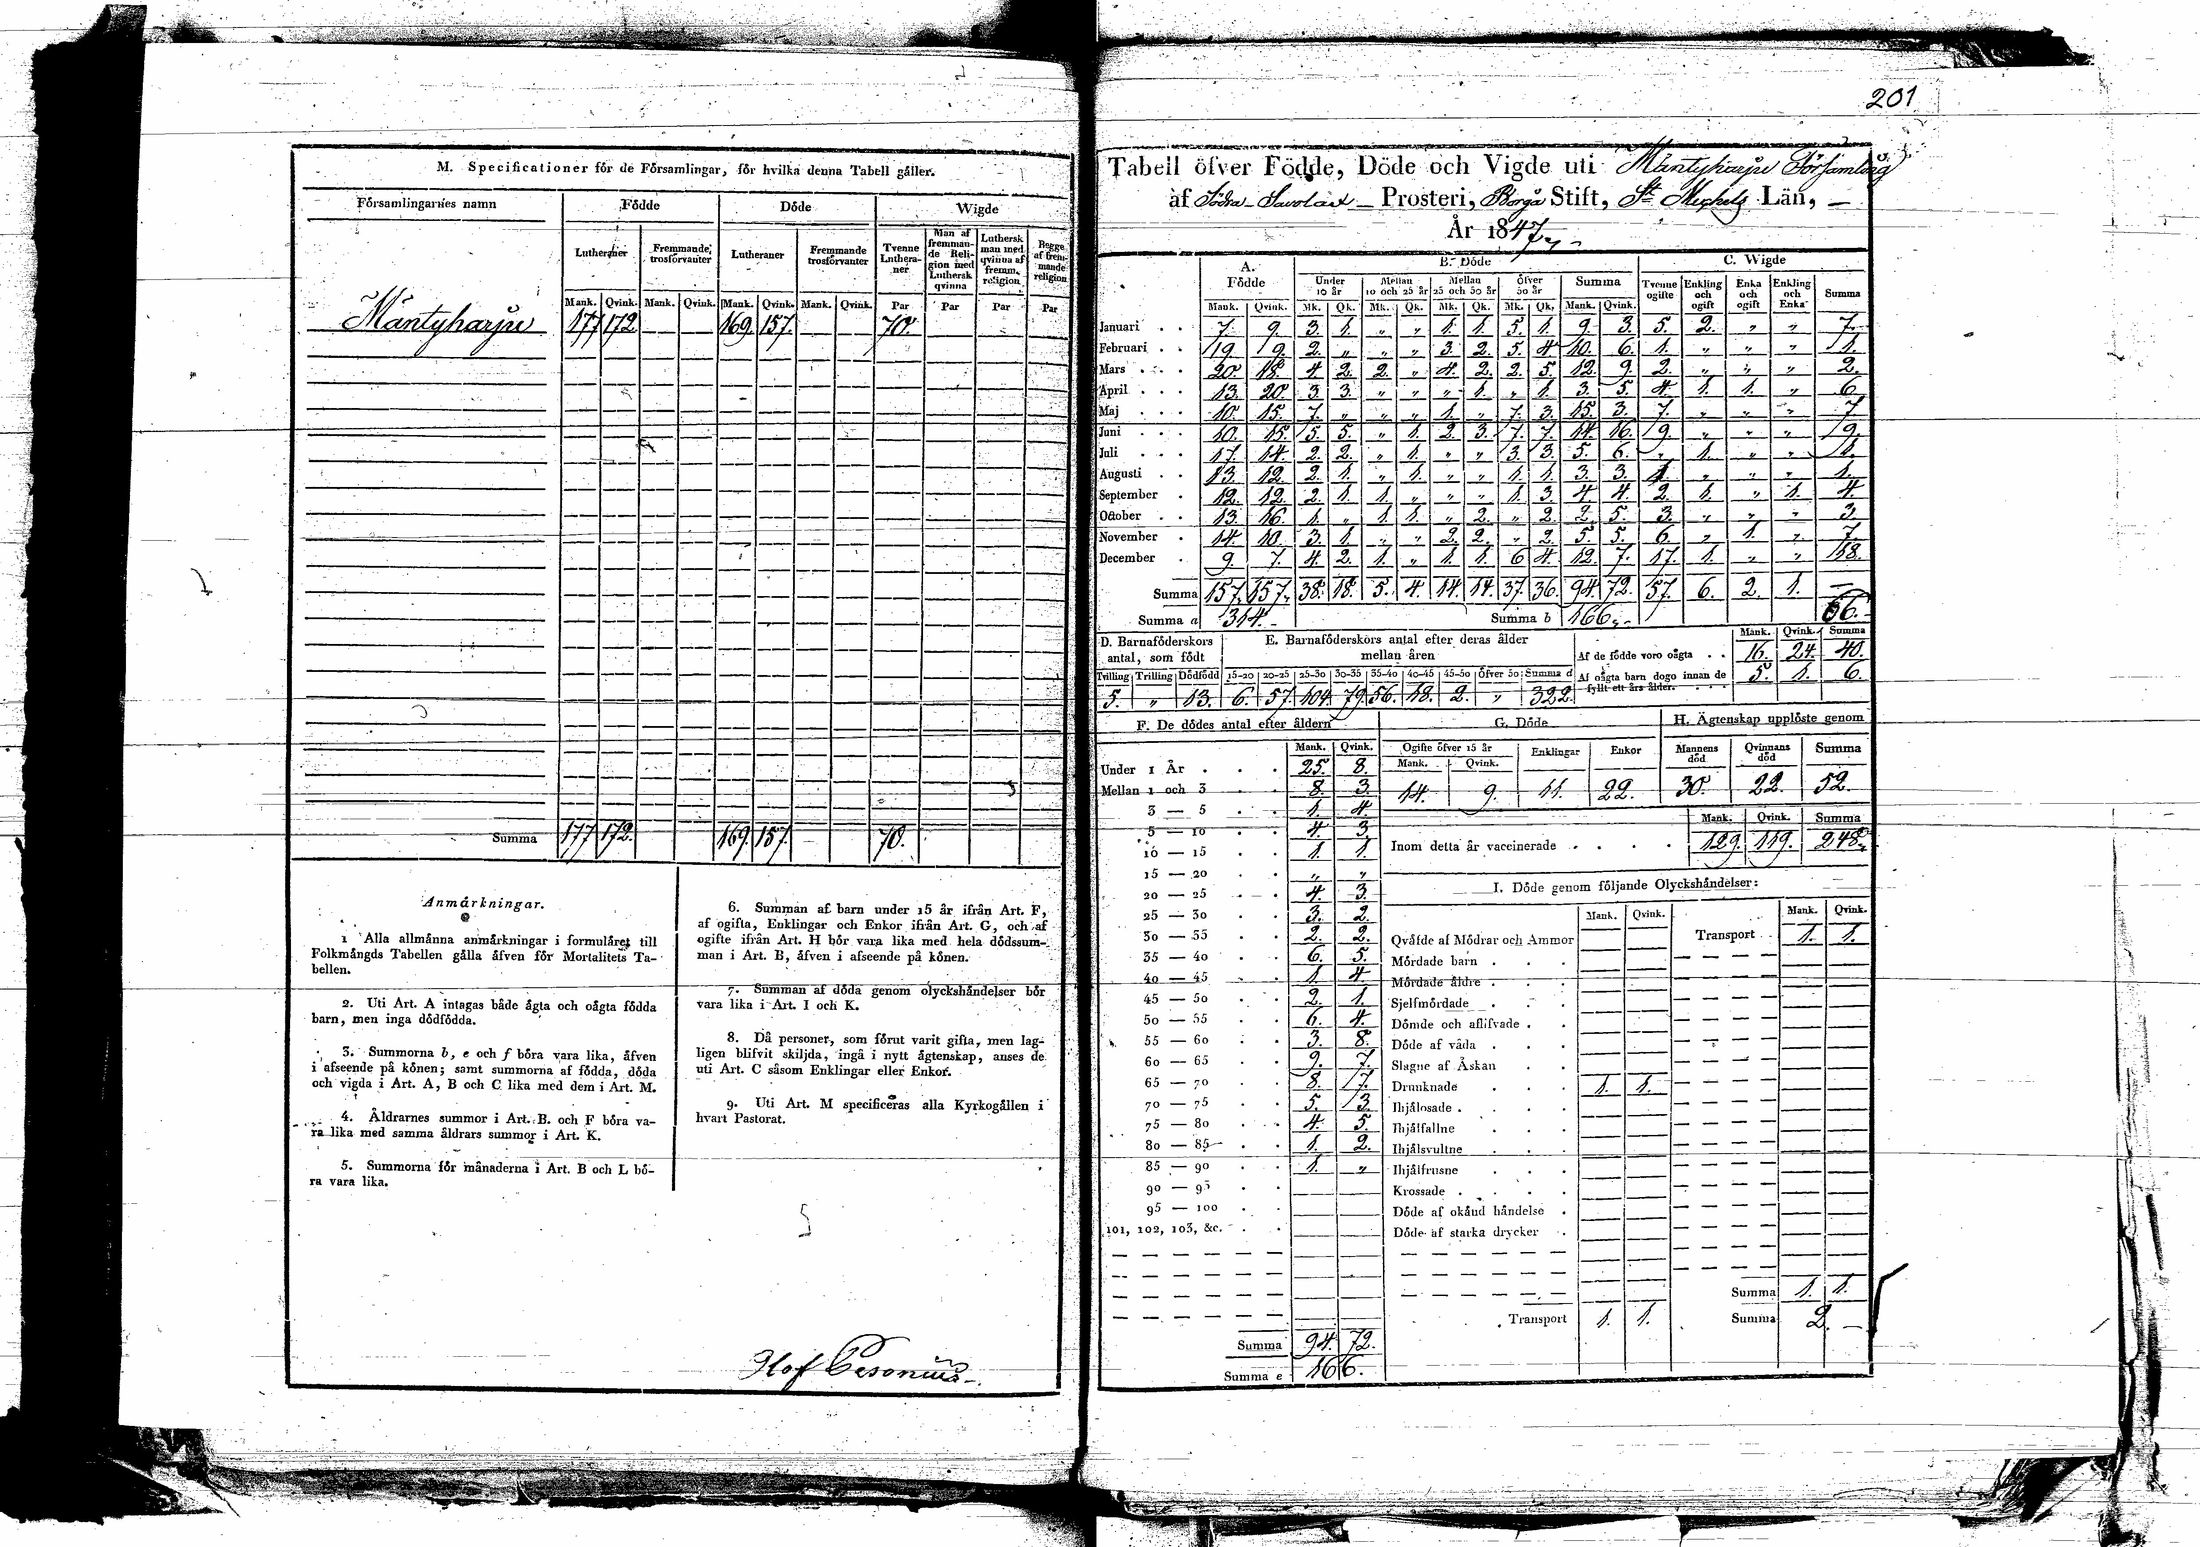 M. Specificationer för de Församlingar, för hvilka denna Tabell gäller.
Församlingarnes namn Födde Döde Wigde
Lutheraner Fremmande trosförvanter Lutheraner Fremmande trosförvanter Tvenne Lutheraner Man af fremmande Religion med Luthersk qvinna Luthersk man med qvinna af fremm. religion Begge af fremmande religion
Mank. Qvink. Mank. Qvink. Mank. Qvink. Mank. Qvink. Par Par Par Par
Mäntyharju 177 172 — — 169. 157. — — 70.
Summa 177 172. 169. 157. 70.
Anmärkningar.
1 Alla allmänna anmärkningar i formuläret till
Folkmängds Tabellen gälla äfven för Mortalitets Ta-
bellen.
2. Uti Art. A intagas både ägta och oägta födda
barn, men inga dödfödda.
3. Summorna b, e och f böra vara lika, äfven
i afseende på könen; samt summorna af födda, döda
och vigda i Art. A, B och C lika med dem i Art. M.
4. Åldrarnes summor i Art. B. och F böra va-
ra lika med samma åldrars summor i Art. K.
5. Summorna för månaderna i Art. B och L bö-
ra vara lika.
6. Summan af barn under 15 år ifrån Art. F,
af ogifta, Enklingar och Enkor ifrån Art. G, och af
ogifte ifrån Art. H bör vara lika med hela dödssum-
man i Art. B, äfven i afseende på könen.
7. Summan af döda genom olyckshändelser bör
vara lika i Art. I och K.
8. Då personer, som förut varit gifta, men lag-
ligen blifvit skiljda, ingå i nytt ägtenskap, anses de
uti Art. C såsom Enklingar eller Enkor.
9. Uti Art. M specificeras alla Kyrkogällen i
hvart Pastorat.
201
Tabell öfver Födde, Döde och Vigde uti Mäntyharju Församling
af Södra Savolax Prosteri, Borgå Stift, St Michels Län,
År 1847
A. Födde B. Döde C. Wigde
Under 10 år Mellan 10 och 25 år Mellan 25 och 50 år Öfver 50 år Summa Tvenne ogifte Enkling och ogift Enka och ogift Enkling och Enka Summa
Mank. Qvink. Mk. Qk. Mk. Qk. Mk. Qk. Mk. Qk. Mank. Qvink.
Januari 7. 9. 3. 1. " " 1. 1. 5. 1. 9. 3. 5. 2. " " 7.
Februari 19 9. 2. " " " 3. 2. 5. 4 10. 6. 1. " " " 1.
Mars 20. 18. 4 2. 2. " 4. 2. 2. 5. 12. 9. 2. " " " 2.
April 13. 20. 3. 3. " " " 1. " 1. 3. 5. 4. 1. 1. " 6.
Maj 10. 15. 7. " " " 1. " 7. 3. 15. 3. 7. " " " 7
Juni 10. 15. 5. 5. " 1. 2. 3. 7. 7. 14. 16. 9. " " " 9.
Juli 17. 14. 2. 2. " 1. " " 3. 3. 5. 6. " 1. " " 1.
Augusti 13. 12. 2. 1. " 1. " " 1. 1. 3. 3. 1 " " " 1.
September 12. 12. 2. 1. 1. " " " 1. 3. 4. 4. 2. 1. " 1. 4.
October 13. 16. 1. " 1. 1. " 2. " 2. 2. 5. 3. " " " 3.
November 14. 10. 3. 1. " " 2. 2. " 2. 5. 5. 6. " 1. " 7.
December 9. 7. 4. 2. 1. " 1. 1. 6 4. 12. 7. 17. 1. " " 18.
Summa 157. 157. 38. 18. 5. 4. 14. 14. 37. 36. 94. 72. 57. 6. 2. 1. —
Summa a 314. Summa b 166. 66.
D. Barnaföderskors antal, som födt
E. Barnaföderskors antal efter deras ålder mellan åren
Mank. Qvink. Summa
Af de födde voro oägta 16. 24. 40.
Af oägta barn dogo innan de fyllt ett års ålder. 5. 1. 6.
Trilling Trilling Dödfödd 15-20 20-25 25-30 30-35 35-40 40-45 45-50 Öfver 50 Summa d
5. " 13. 6. 57. 104. 79. 56. 18. 2. " 322.
F. De dödes antal efter åldern
Mank. Qvink.
Under 1 År 25. 8.
Mellan 1 och 3 8. 3.
3 — 5 1. 4.
5 — 10 4. 3.
10 — 15 1. 1.
15 — 20 " "
20 — 25 4. 3.
25 — 30 3. 2.
30 — 35 2. 2.
35 — 40 6. 5.
40 — 45 1. 4
45 — 50 2. 1.
50 — 55 6. 4.
55 — 60 3. 8.
60 — 65 9. 7.
65 — 70 8. 17.
70 — 75 5. 3.
75 — 80 4. 5.
80 — 85 1. 2.
85 — 90 1. "
90 — 95
95 — 100
101, 102, 103, &c.
Summa 94. 72.
Summa e 166.
G. Döde
Ogifte öfver 15 år Enklingar Enkor
Mank. Qvink.
14. 9. 11. 22.
H. Ägtenskap upplöste genom
Mannens död Qvinnans död Summa
30. 22. 52.
Mank. Qvink. Summa
Inom detta år vaccinerade 129. 119. 248.
I. Döde genom följande Olyckshändelser:
Mank. Qvink. Mank. Qvink.
Qväfde af Mödrar och Ammor Transport 1. 1.
Mördade barn
Mördade äldre
Sjelfmördade
Dömde och aflifvade
Döde af våda
Slagne af Åskan
Drunknade 1. 1.
Ihjälosade
Ihjälfallne
Ihjälsvultne
Ihjälfrusne
Krossade
Döde af okänd händelse
Döde af starka drycker
Summa 1. 1.
Transport 1. 1. Summa 2.